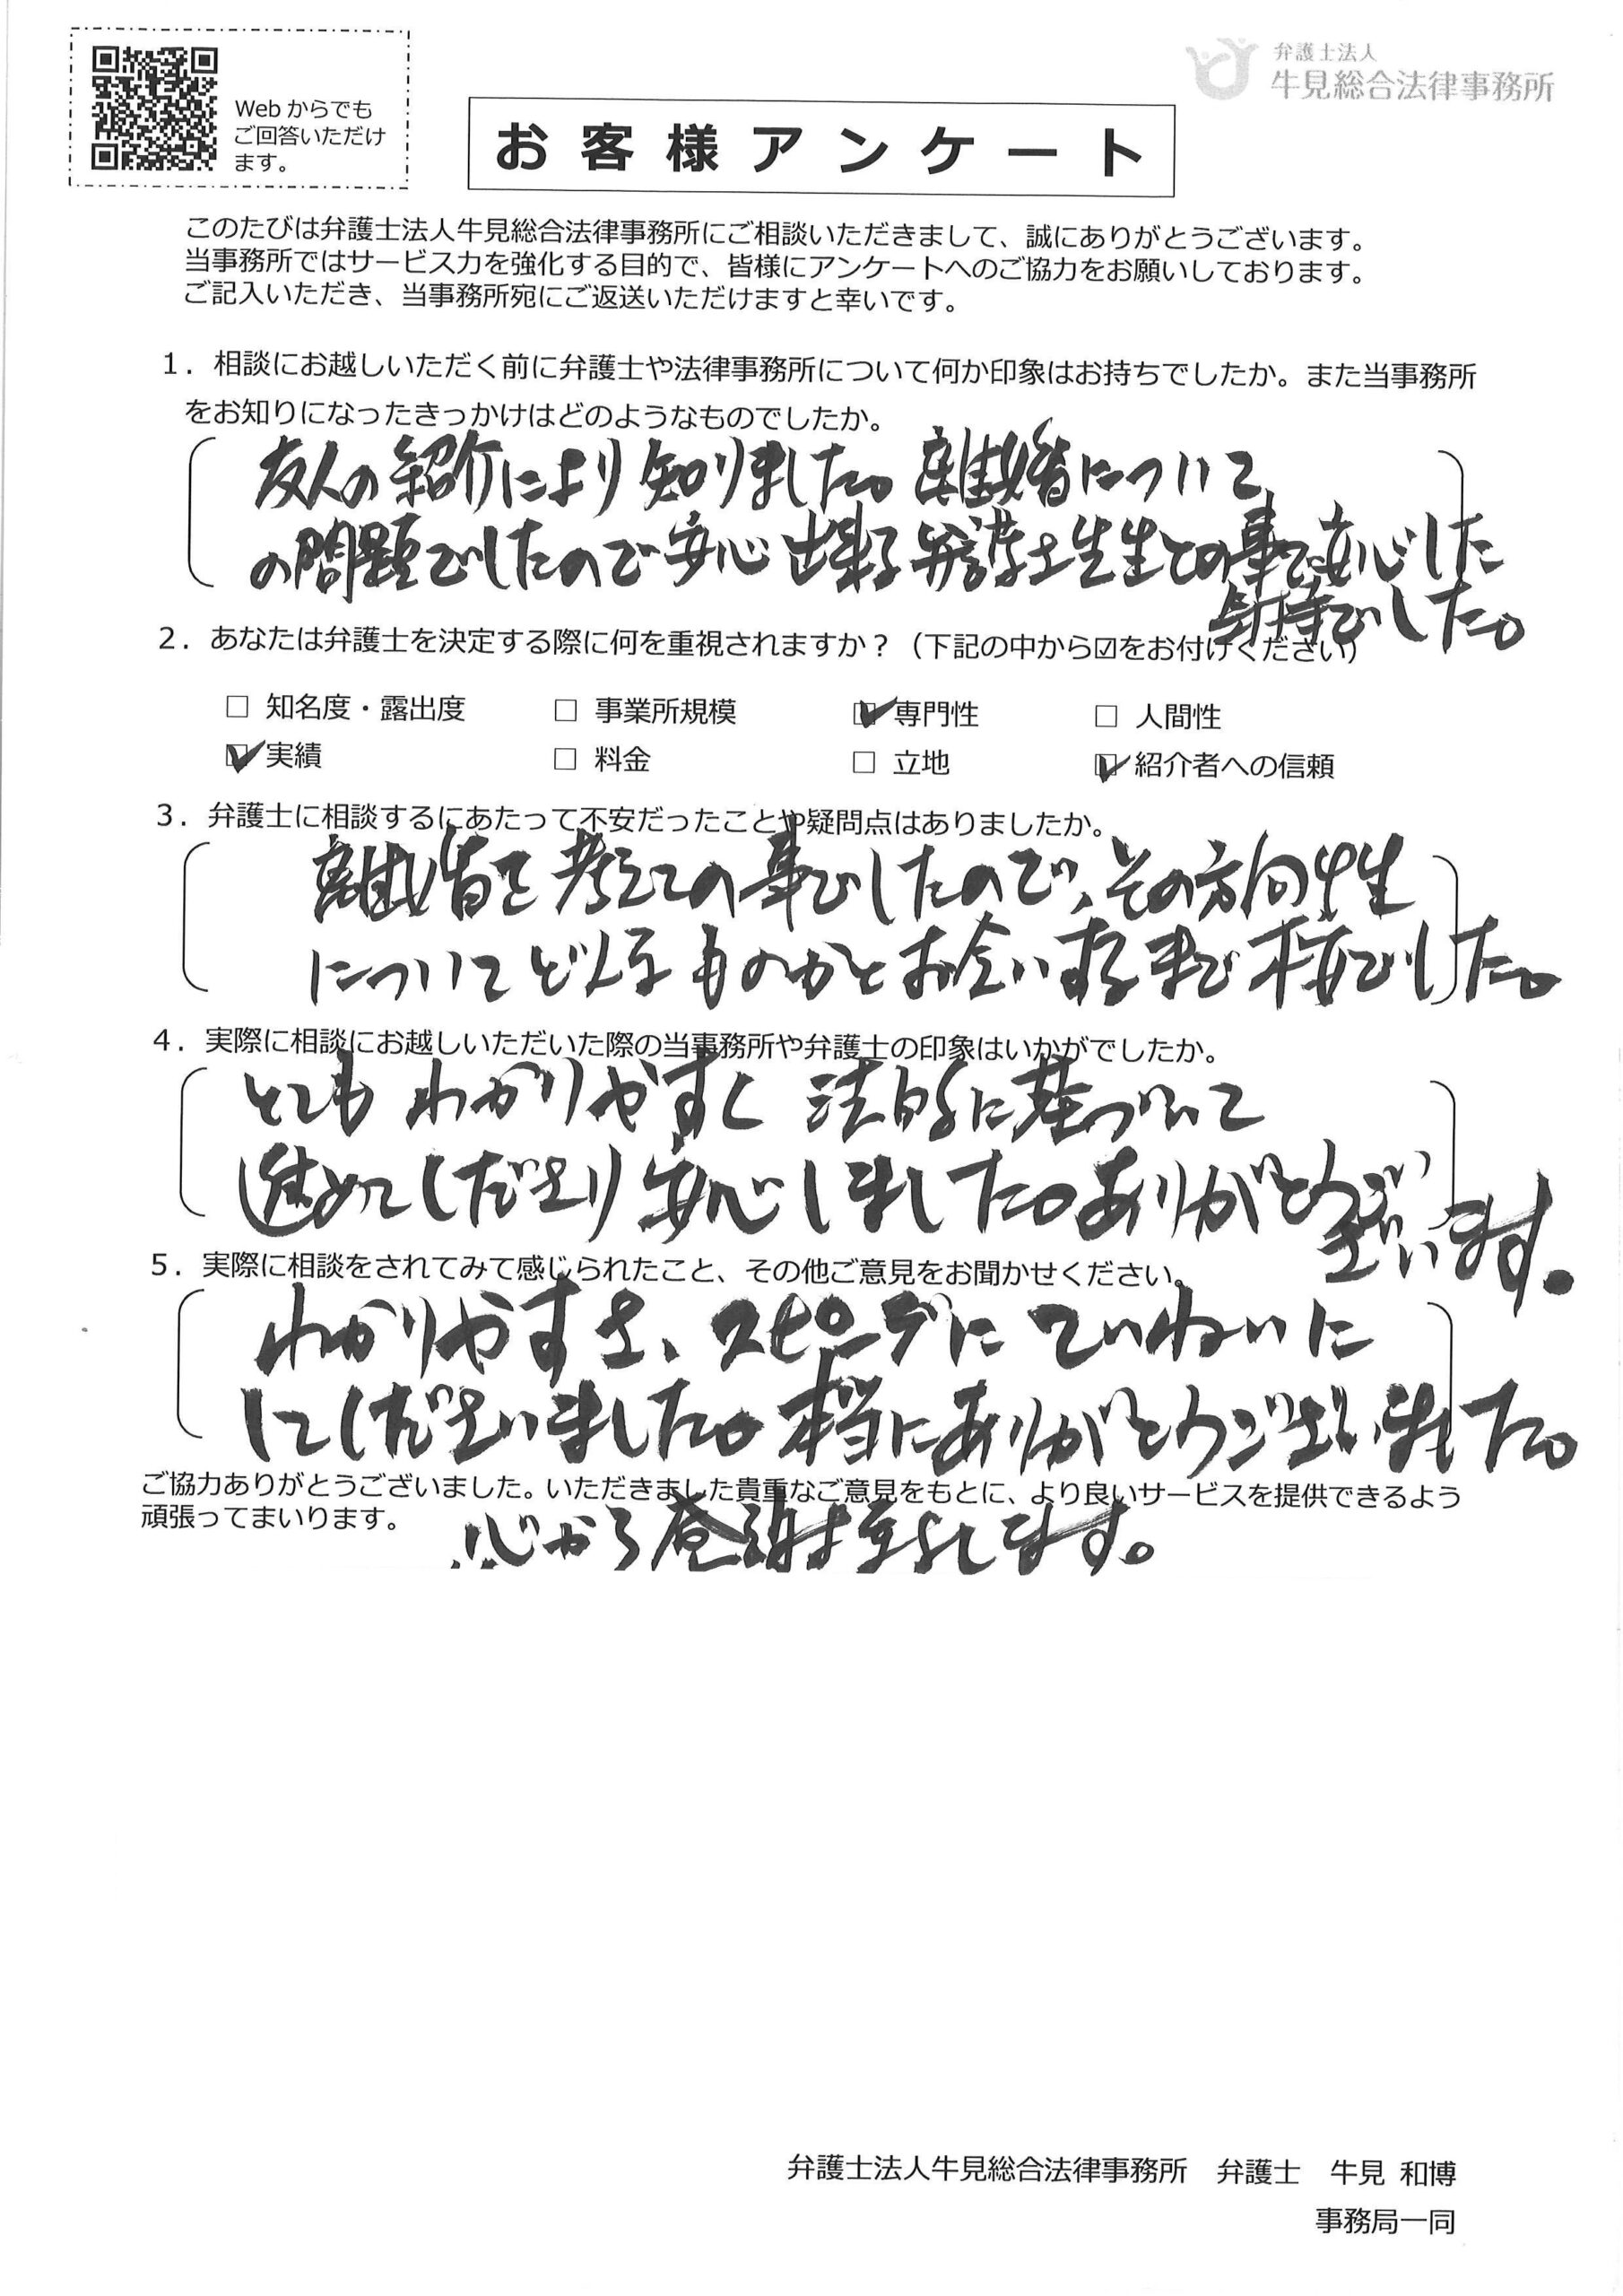 Webからでも
ご回答いただけ
ます。
弁護士法人
牛見総合法律事務所
お客様アンケート
このたびは弁護士法人牛見総合法律事務所にご相談いただきまして、誠にありがとうございます。
当事務所ではサービス力を強化する目的で、皆様にアンケートへのご協力をお願いしております。
ご記入いただき、当事務所宛にご返送いただけますと幸いです。
1．相談にお越しいただく前に弁護士や法律事務所について何か印象はお持ちでしたか。また当事務所
をお知りになったきっかけはどのようなものでしたか。
友人の紹介により知りました。離婚について
の問題でしたので安心出来る弁護士先生との事で安心した
気持でした。
2．あなたは弁護士を決定する際に何を重視されますか？（下記の中から☑をお付けください）
□ 知名度・露出度 □ 事業所規模 ☑ 専門性 □ 人間性
☑ 実績 □ 料金 □ 立地 ☑ 紹介者への信頼
3．弁護士に相談するにあたって不安だったことや疑問点はありましたか。
離婚を考えての事でしたので、その方向性
についてどんなものかとお会いするまで不安でした。
4．実際に相談にお越しいただいた際の当事務所や弁護士の印象はいかがでしたか。
とてもわかりやすく法的に基づいて
進めてくださり安心しました。ありがとうござい
ます。
5．実際に相談をされてみて感じられたこと、その他ご意見をお聞かせください。
わかりやすさ、スピーデにていねいに
してくださいました。本当にありがとウございました。
ご協力ありがとうございました。いただきました貴重なご意見をもとに、より良いサービスを提供できるよう
頑張ってまいります。
心から感謝致します。
弁護士法人牛見総合法律事務所　弁護士　牛見 和博
事務局一同